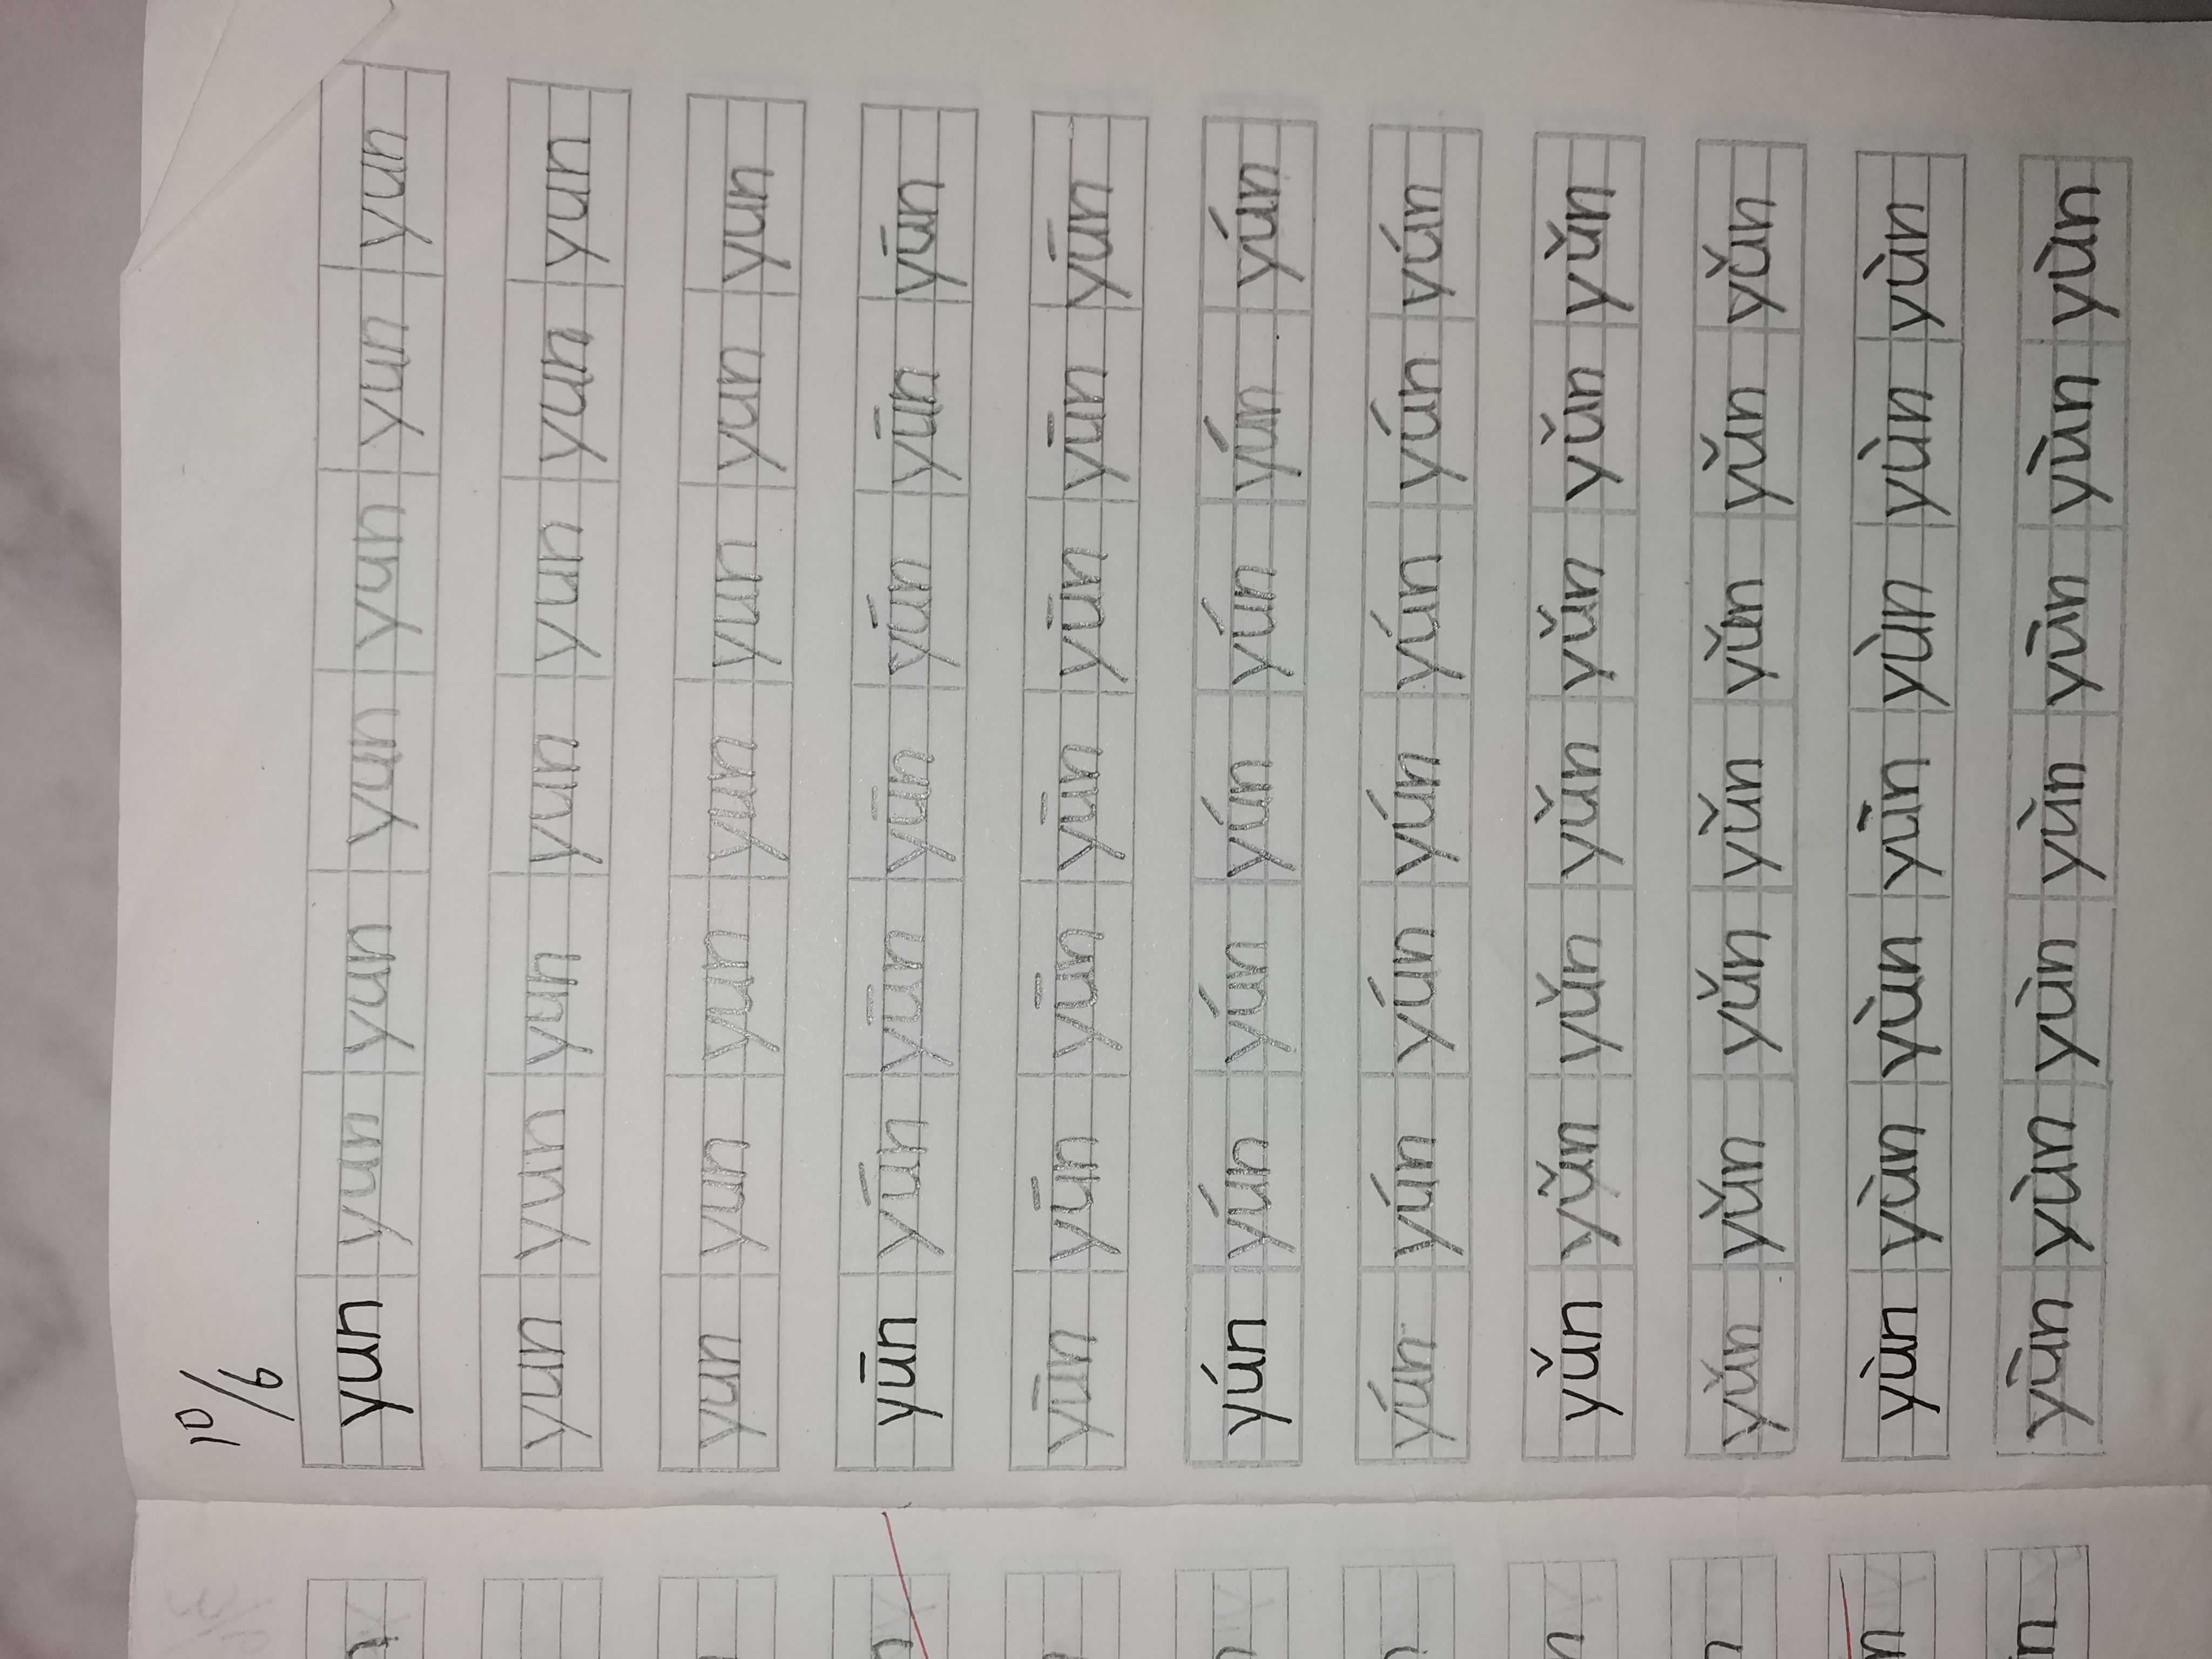 10/6
yun yun yun yun yun yun yun
yun yun yun yun yun yun yun
yun yun yun yun yun yun yun
yūn yūn yūn yūn yūn yūn yūn
yūn yūn yūn yūn yūn yūn yūn
yún yún yún yún yún yún yún
yún yún yún yún yún yún yún
yǔn yǔn yǔn yǔn yǔn yǔn yǔn
yǔn yǔn yǔn yǔn yǔn yǔn yǔn
yùn yùn yùn yùn yùn yùn yùn
yùn yùn yùn yùn yùn yùn yùn